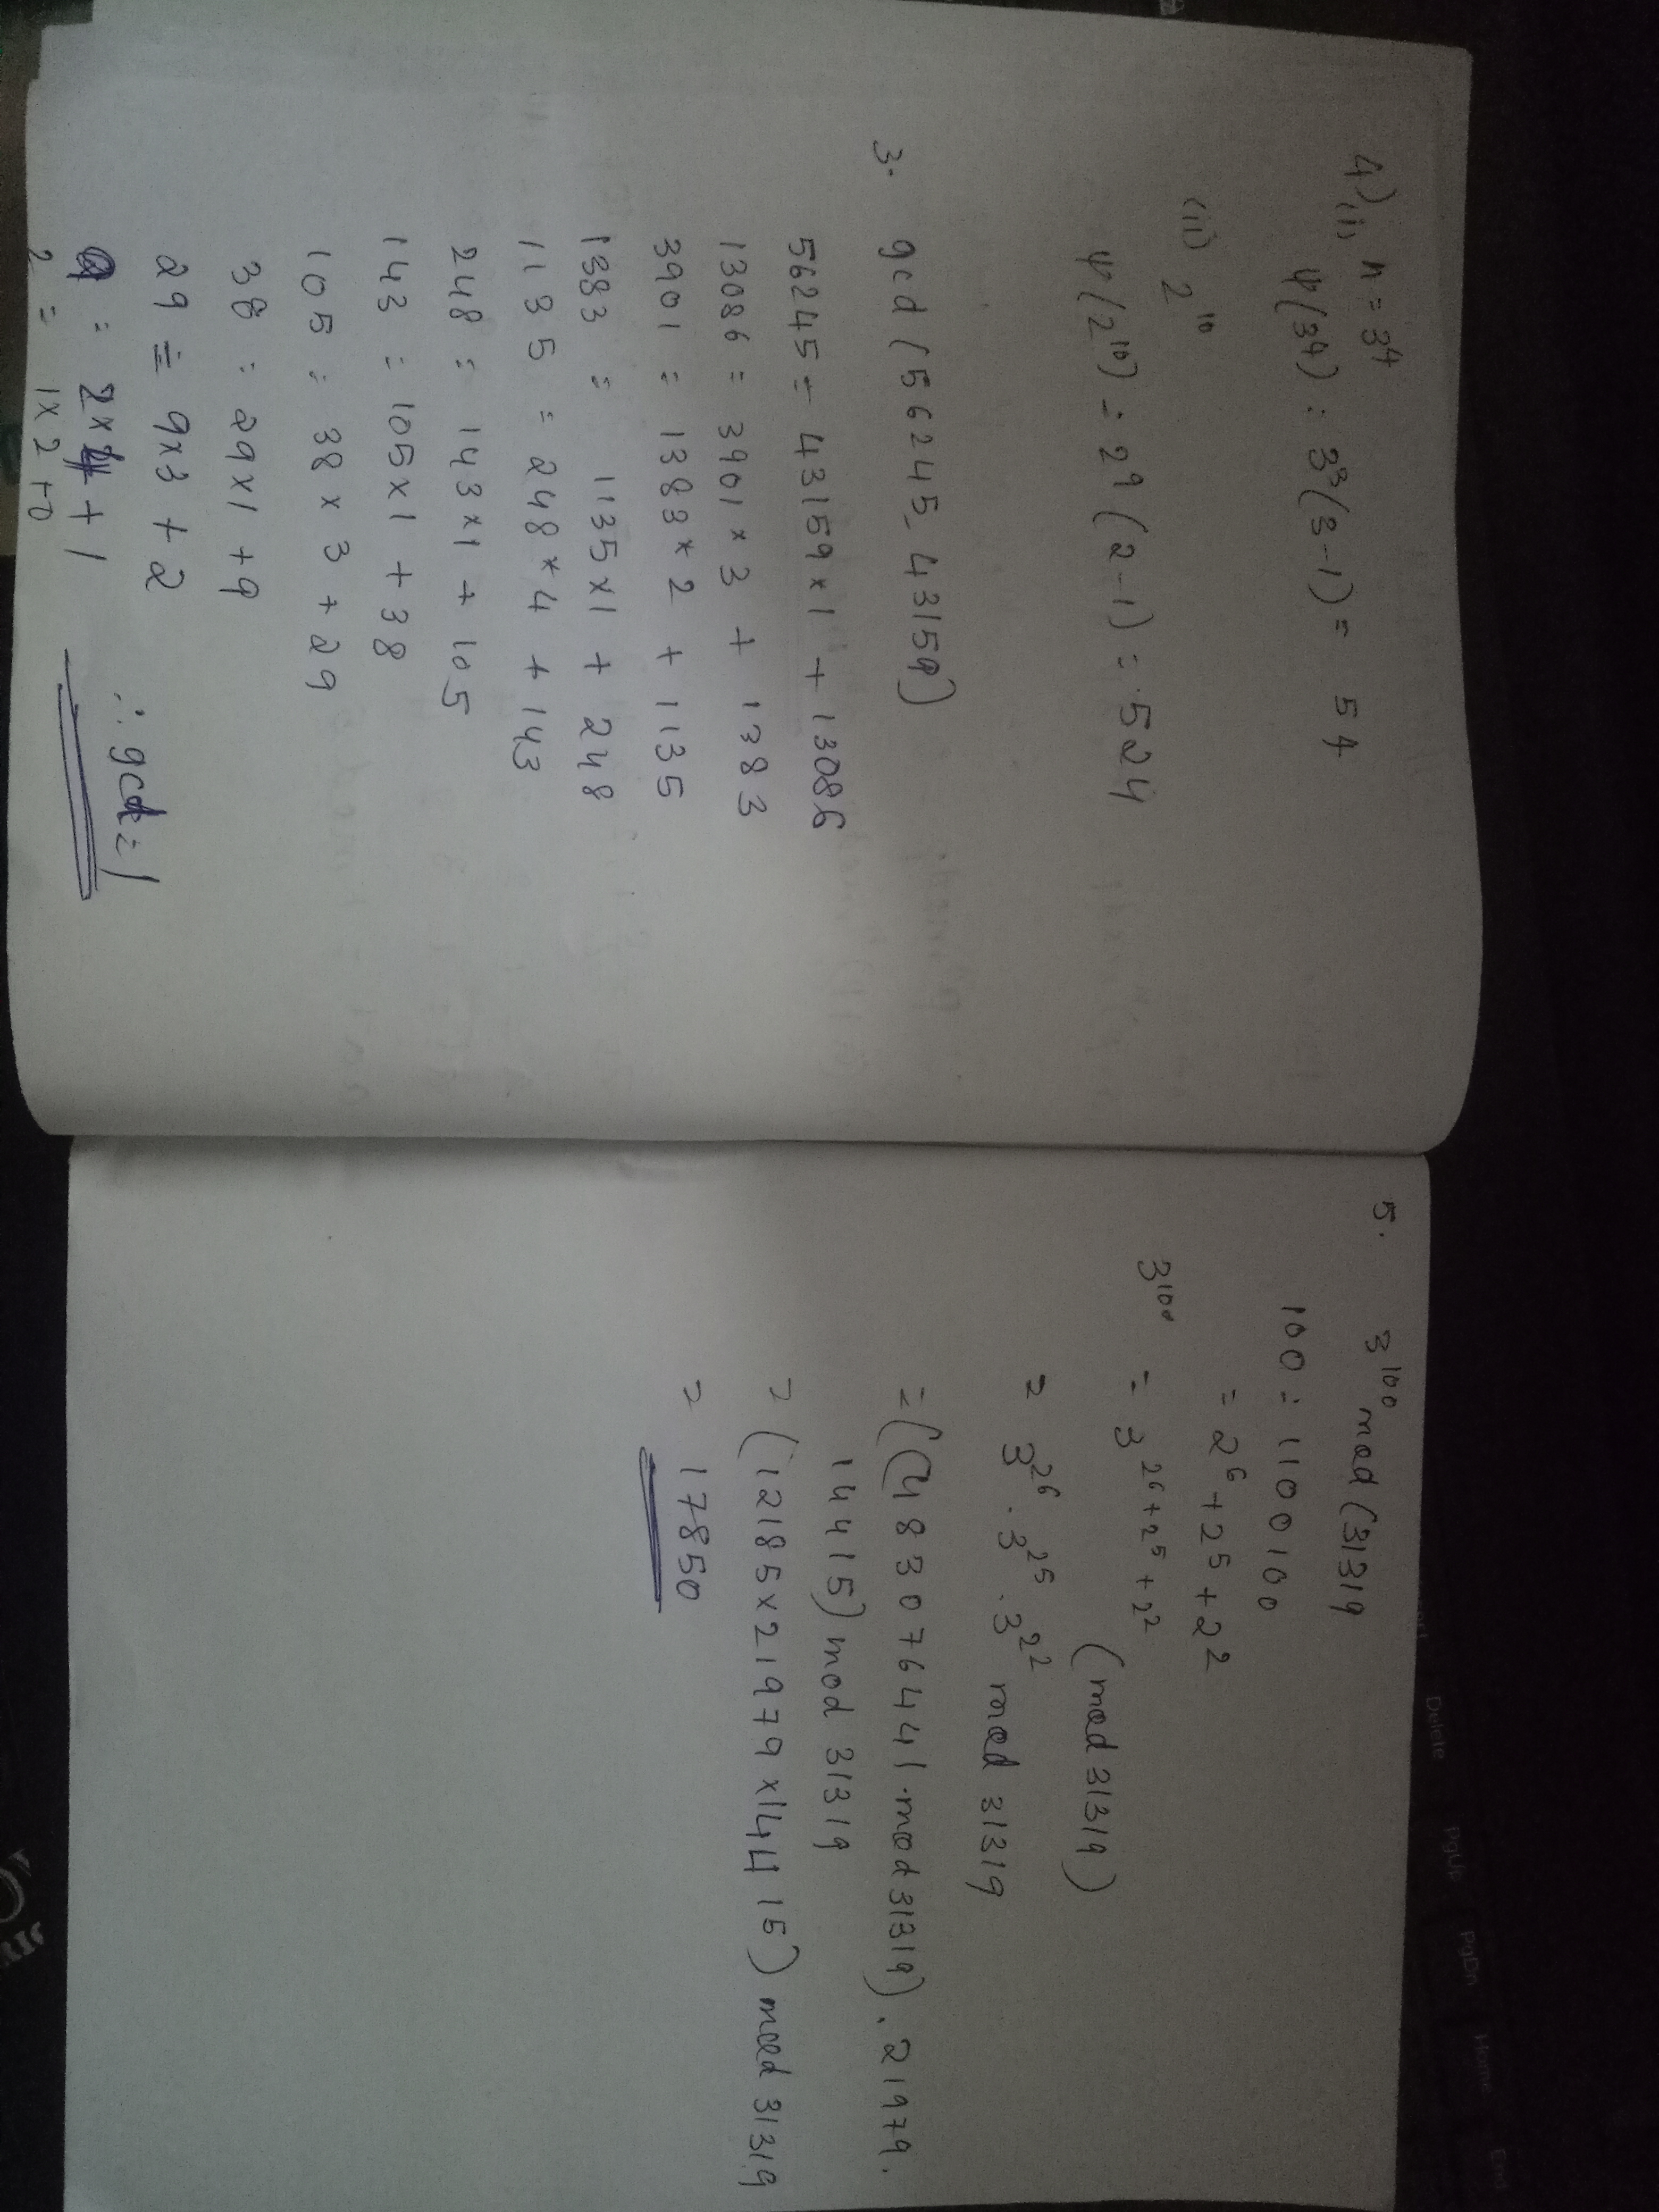 4) (i) n = 3⁴
ψ(3⁴) = 3³(3-1) = 54
(ii) 2¹⁰
ψ(2¹⁰) = 2⁹(2-1) = 524
3. gcd (56245, 43159)
56245 = 43159×1 + 13086
13086 = 3901×3 + 1383
3901 = 1383×2 + 1135
1383 = 1135×1 + 248
1135 = 248*4 + 143
248 = 143×1 + 105
143 = 105×1 + 38
105 = 38×3 + 29
38 = 29×1 + 9
29 = 9×3 + 2
9 = 2×4 + 1
2 = 1×2+0
∴ gcd = 1
5. 3¹⁰⁰ mod (31319
100 = 1100100
= 2⁶+2⁵+2²
3¹⁰⁰ = 3^(2⁶+2⁵+2²) (mod 31319)
= 3^2⁶ . 3^2⁵ . 3^2² mod 31319
= ((483076441.mod 31319). 21979.
14415) mod 31319
= (12185×21979×14415) mod 31319
= 17850
Delete
PgUp
PgDn
Home
End